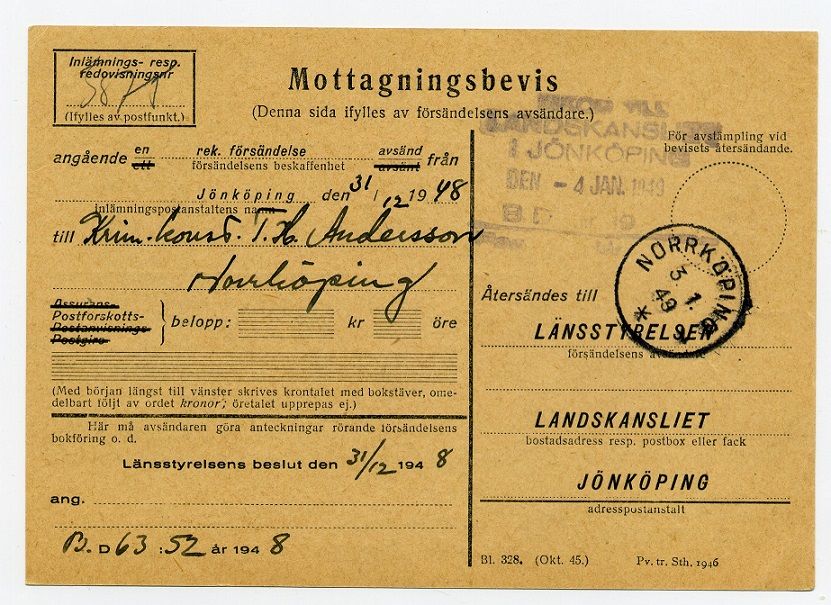 Inlämnings- resp.
redovisningsnr
(Ifylles av postfunkt.)
Mottagningsbevis
(Denna sida ifylles av försändelsens avsändare.)
angående en ett rek. försändelse avsänd avsänt från
försändelsens beskaffenhet
Jönköping den 31/12 1948
inlämningspostanstaltens namn
till Krim.konst. T. H. Andersson
Norrköping
Assurans-
Postforskotts-
Postanvisnings-
Postgiro-
belopp: kr öre
(Med början längst till vänster skrives krontalet med bokstäver, ome-
delbart följt av ordet kronor; öretalet upprepas ej.)
Här må avsändaren göra anteckningar rörande försändelsens
bokföring o. d.
Länsstyrelsens beslut den 31/12 1948
ang.
B. D 63 :52 år 1948
LANDSKANSLIET
I JÖNKÖPING
DEN - 4 JAN. 1949
För avstämpling vid
bevisets återsändande.
NORRKÖPING
3 1.
49
Återsändes till
LÄNSSTYRELSEN
försändelsens avsändare
LANDSKANSLIET
bostadsadress resp. postbox eller fack
JÖNKÖPING
adresspostanstalt
Bl. 328. (Okt. 45.) Pv. tr. Sth. 1946